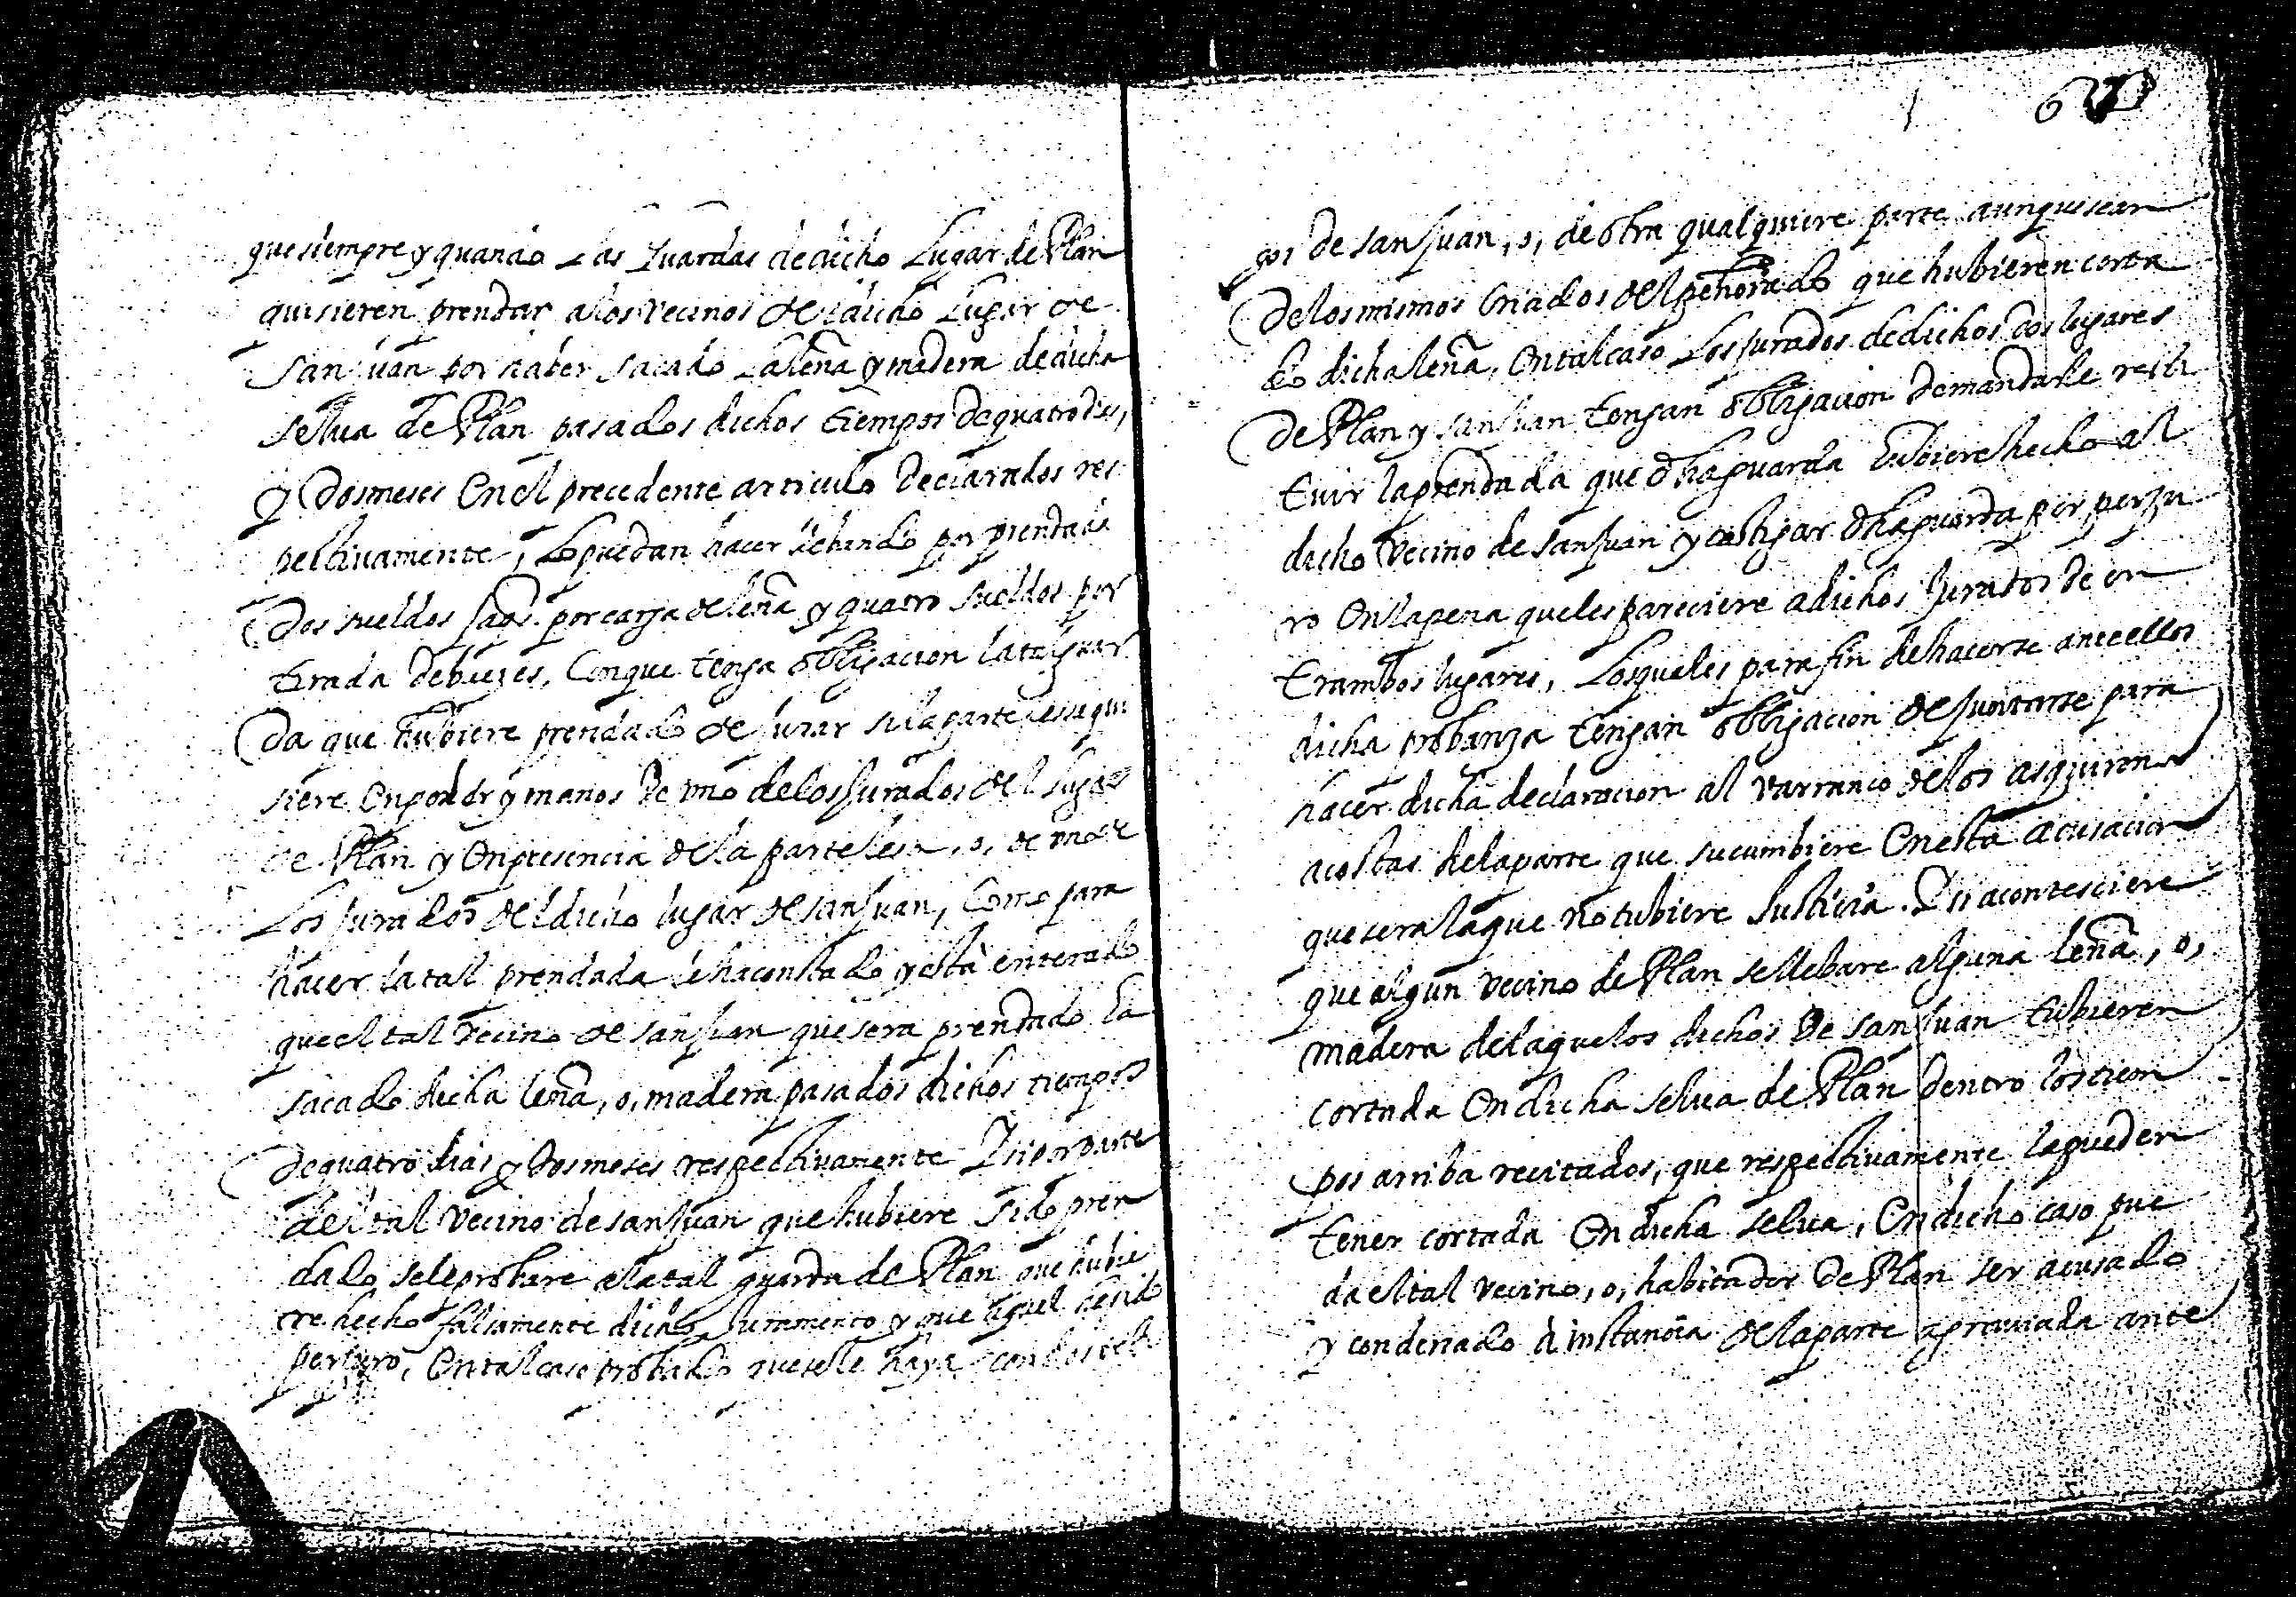 que siempre y quando Las Guardas de dicho Lugar de Plan
quisieren prendar a los vecinos del dicho Lugar de
San Juan por haber sacado La leña y madera de dicha
selua de Plan pasados dichos tiempos de quatro dias,
y dos meses En el precedente articulo declarados res
pectiuamente, Lo puedan hacer lleuando por prendada
dos sueldos por carga de leña y quatro sueldos por
tirada de bueyes, Con que tenga obligacion la tal guar
da que hubiere prendado de Jurar si la parte lessa qui
siere En poder y manos de uno de los Jurados del Lugar
de Plan y En presencia de la parte lesa, o, de uno de
Los Jurados del dicho lugar de San Juan, Como para
hacer la tal prendada le ha constado y está enterado
que el tal vecino de San Juan que sera prendado ha
sacado dicha leña, o, madera pasados dichos tiempos
de quatro dias y dos meses respectiuamente Y si por parte
del tal vecino de San Juan que hubiere sido pren
dado se le probare a la tal guarda de Plan que hubie
re hecho falsamente dicho Juramento y que aquel ha sido
perjuro, En tal caso probado que se le haya con dos testi
gos de San Juan, o, de otra qualquiere parte aunque sean
de los mismos Criados del peñorado que hubieren corta
do dicha leña, En tal caso Los Jurados de dichos dos lugares
de Plan y San Juan tengan obligacion de mandarle resti
tuir la prendada que dha guarda hubiere hecho al
dicho vecino de San Juan y castigar dha guarda por perju
ro En la pena que les pareciere a dichos Jurados de en
trambos lugares, Los queles para fin de hacerse ante ellos
dicha probanza tengan obligacion de Juntarse para
hacer dicha declaracion al varranco de los asquirons
a costas de la parte que sucumbiere En esta acusacion
que sera la que no tubiere Justicia. Y si acontesciere
que algun vecino de Plan se llebare alguna leña, o,
madera de la que los dichos de San Juan tubieren
cortada En dicha selua de Plan dentro los tiem
pos arriba recitados, que respectiuamente la pueden
tener cortada En dicha selua, En dicho caso pue
da el tal vecino, o, habitador de Plan ser acusado
y condenado à instancia de la parte agrauiada ante